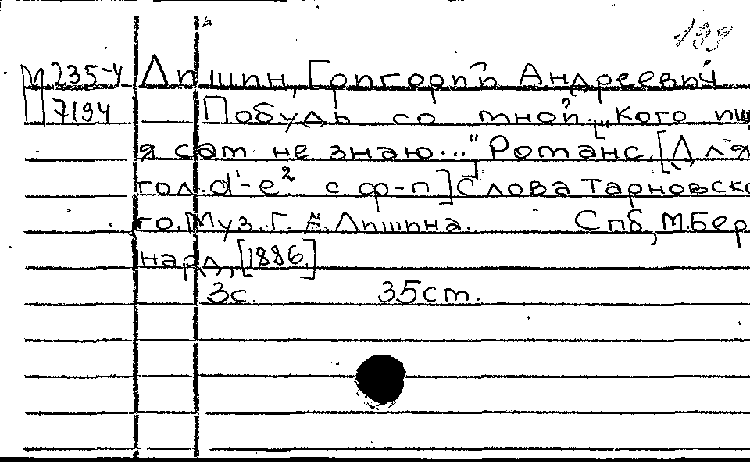 199
М 235-4 Лишин, [Григорий Андреевич
7194 Побудь со мной „[Кого ищ
я сам не знаю..." Романс. [Для
гол. d'-e² с ф-п] Слова Тарновско
го. Муз. Г. А. Лишина. Спб, М. Бер
нард, [1886.]
3с. 35ст.